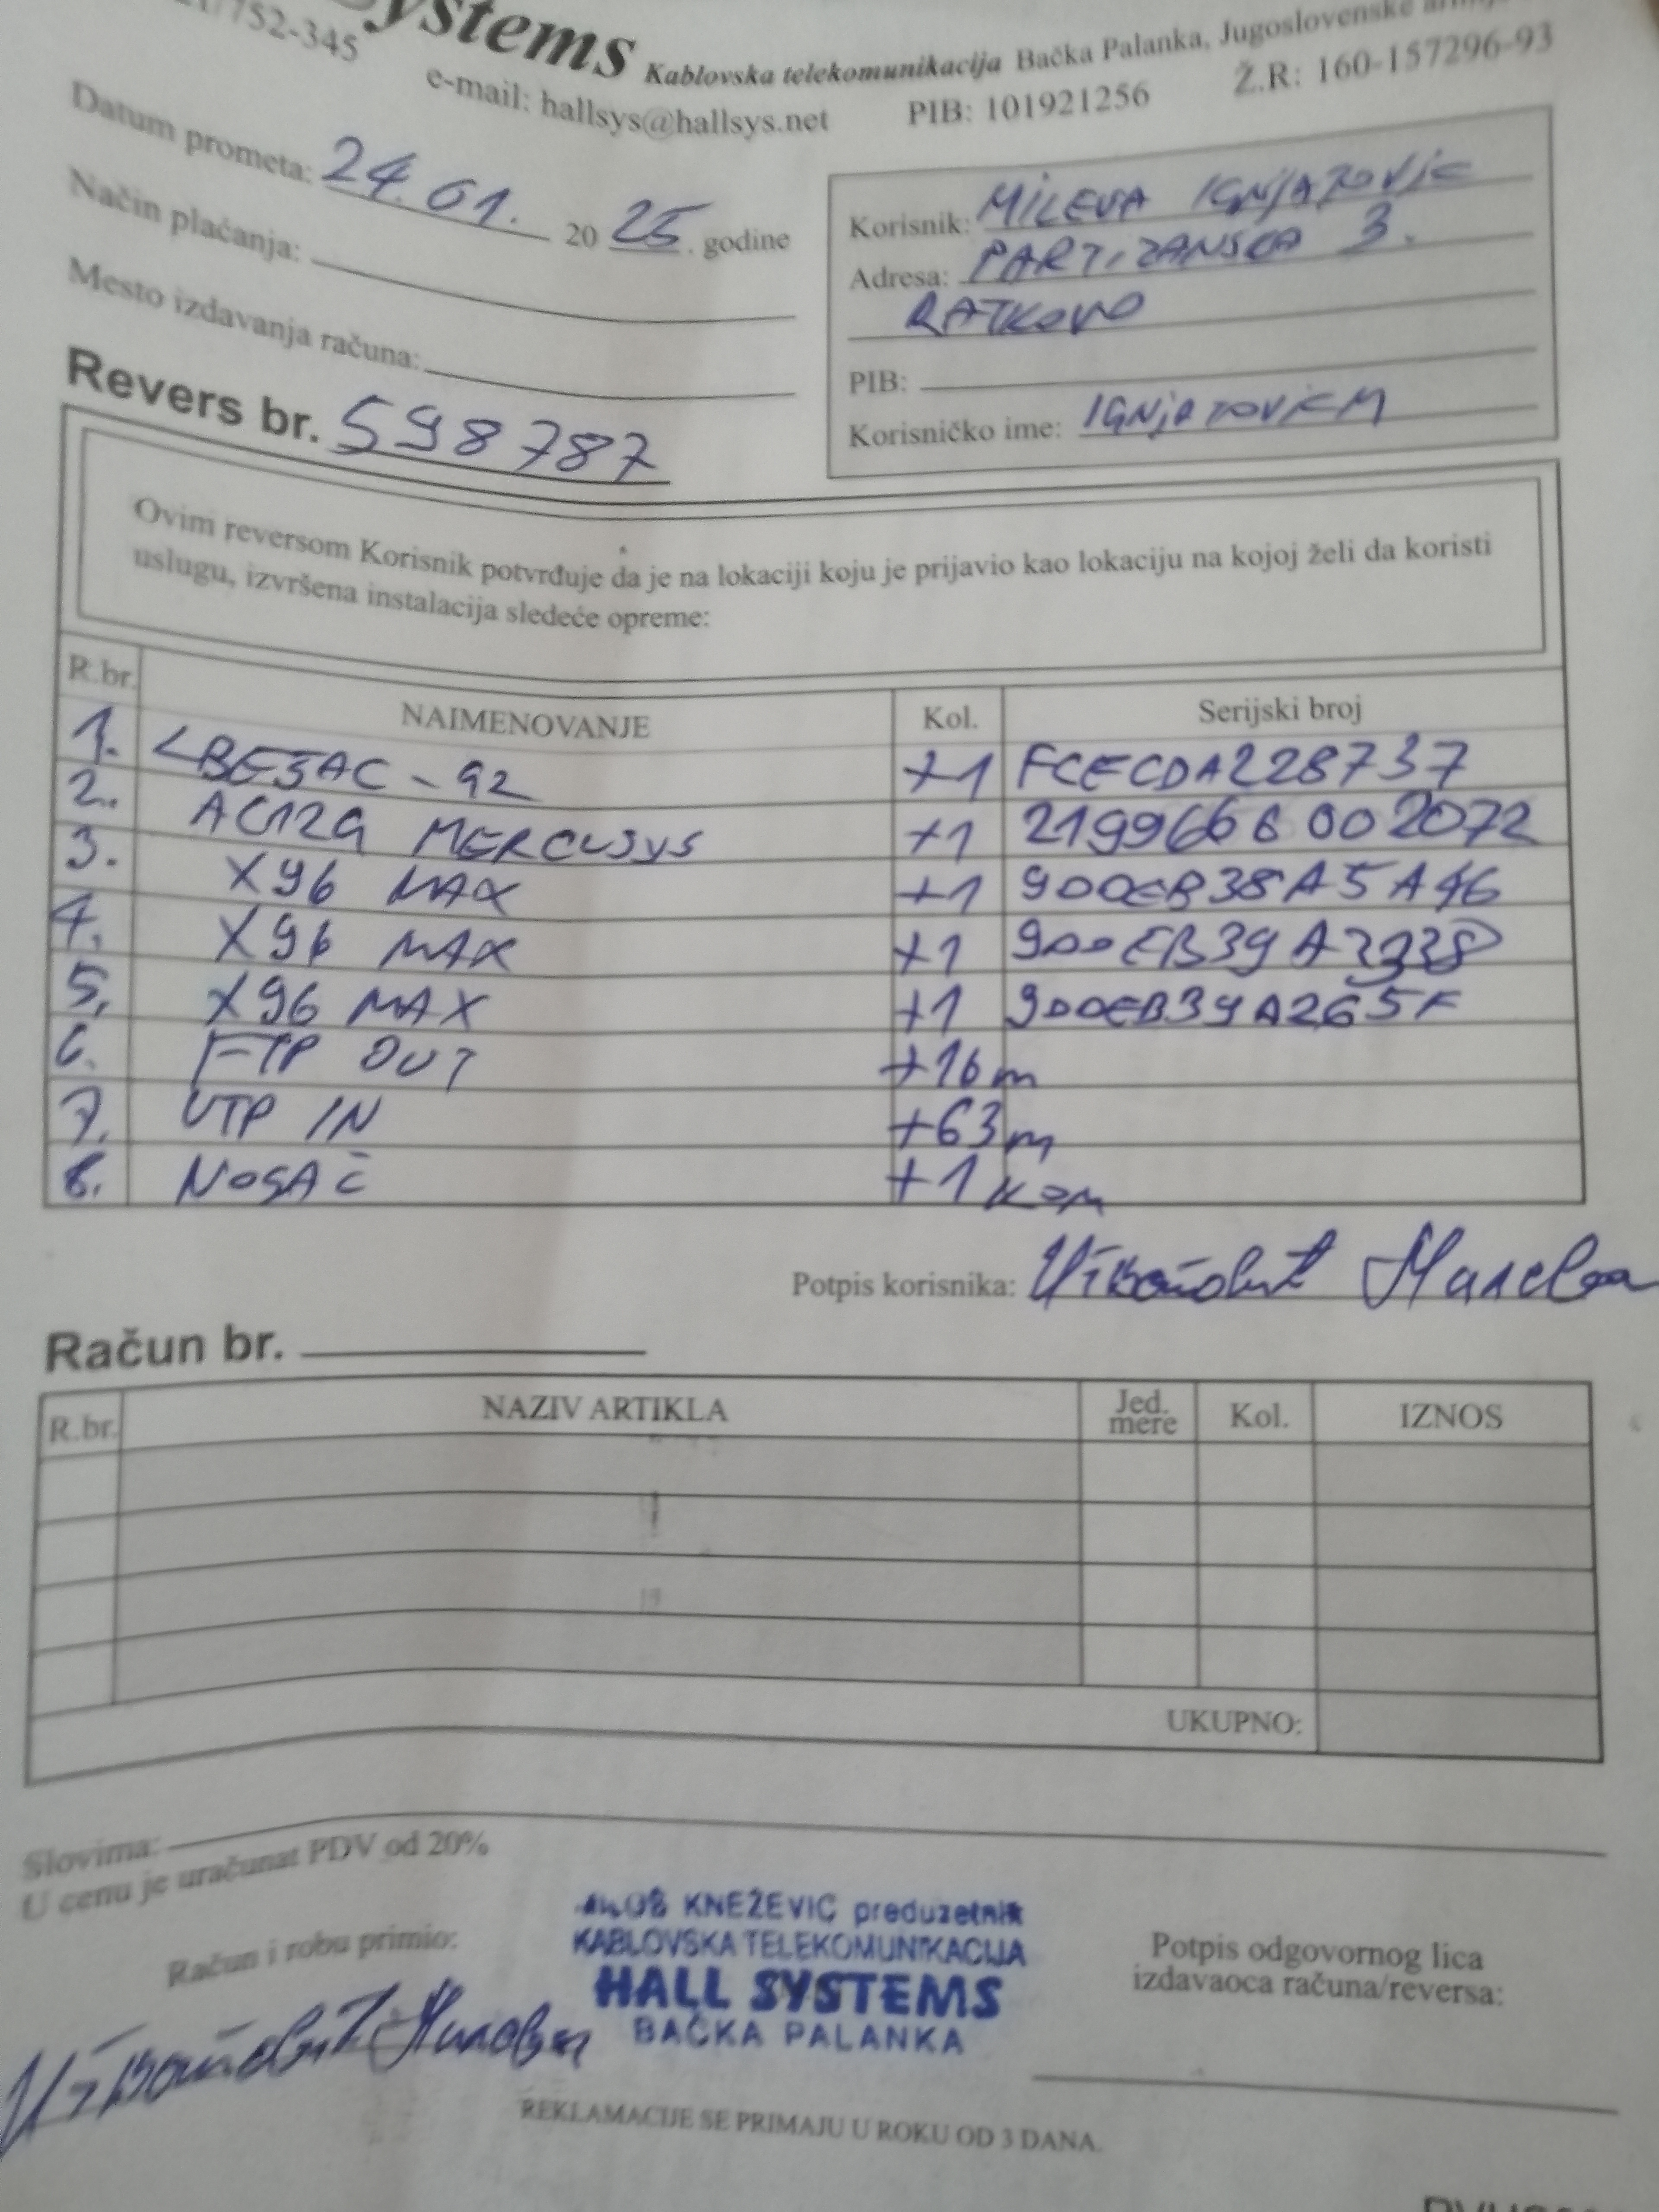 752-345
ystems Kablovska telekomunikacija Bačka Palanka, Jugoslovenske
e-mail: hallsys@hallsys.net PIB: 101921256 Ž.R: 160-157296-93
Datum prometa: 24.01. 2025. godine
Način plaćanja:
Mesto izdavanja računa:
Revers br. 598787
Korisnik: MILEVA IGNJATOVIĆ
Adresa: PARTIZANSKA 3.
RATKOVO
PIB:
Korisničko ime: IGNJATOVICM
Ovim reversom Korisnik potvrđuje da je na lokaciji koju je prijavio kao lokaciju na kojoj želi da koristi
uslugu, izvršena instalacija sledeće opreme:
R.br. NAIMENOVANJE Kol. Serijski broj
1. LBE5AC-92 +1 FCECDA228737
2. AC12G MERCUSYS +1 2199666002072
3. X96 MAX +1 900EB38A5A46
4. X96 MAX +1
5. X96 MAX +1 900EB39A265F
6. FTP OUT +16m
7. UTP IN +63m
8. NOSAČ +1 KOM
Potpis korisnika: Милева
Račun br.
R.br. NAZIV ARTIKLA Jed. mere Kol. IZNOS
UKUPNO:
Slovima:
U cenu je uračunat PDV od 20%
Račun i robu primio:
KNEŽEVIĆ preduzetnik
KABLOVSKA TELEKOMUNIKACIJA
HALL SYSTEMS
BAČKA PALANKA
Potpis odgovornog lica
izdavaoca računa/reversa:
REKLAMACIJE SE PRIMAJU U ROKU OD 3 DANA.